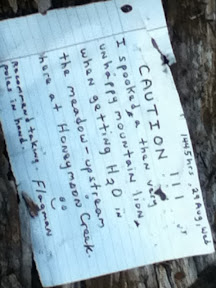 1045 hrs, 29 Aug, Wed
CAUTION!!!
I spooked a then very
unhappy mountain lion,
when getting H2O in
the meadow - upstream
here at Honeymoon Creek.
Recommend taking Flagman
poles in hand.